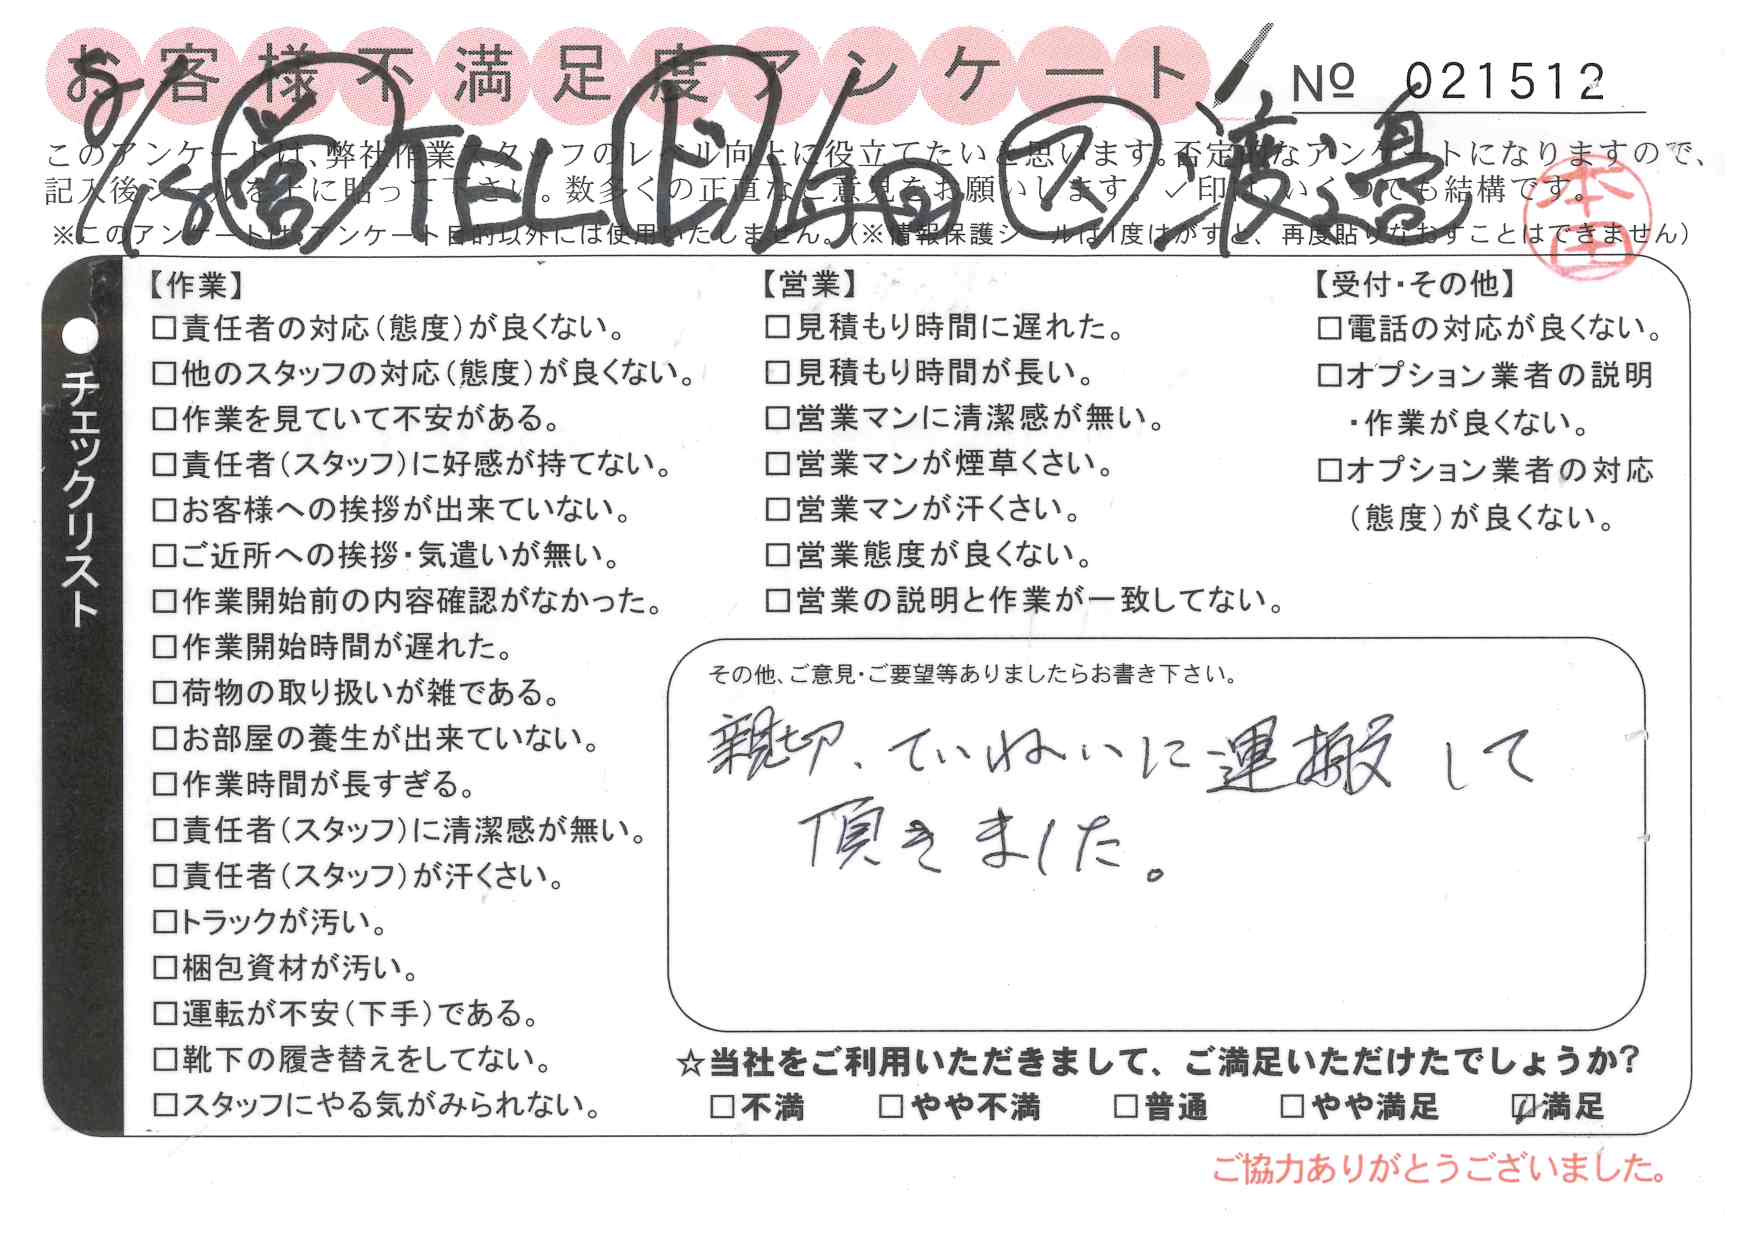 お客様不満足度アンケート
№ 021512
このアンケートは、弊社作業スタッフのレベル向上に役立てたいと思います。否定的なアンケートになりますので、
記入後シールを上に貼って下さい。数多くの正直なご意見をお願いします。✓印は、いくつでも結構です。
※このアンケートは、アンケート目的以外には使用いたしません。(※情報保護シールは1度はがすと、再度貼りなおすことはできません)
営 TEL ド ス 渡邉
本田
チェックリスト
【作業】
□責任者の対応(態度)が良くない。
□他のスタッフの対応(態度)が良くない。
□作業を見ていて不安がある。
□責任者(スタッフ)に好感が持てない。
□お客様への挨拶が出来ていない。
□ご近所への挨拶・気遣いが無い。
□作業開始前の内容確認がなかった。
□作業開始時間が遅れた。
□荷物の取り扱いが雑である。
□お部屋の養生が出来ていない。
□作業時間が長すぎる。
□責任者(スタッフ)に清潔感が無い。
□責任者(スタッフ)が汗くさい。
□トラックが汚い。
□梱包資材が汚い。
□運転が不安(下手)である。
□靴下の履き替えをしてない。
□スタッフにやる気がみられない。
【営業】
□見積もり時間に遅れた。
□見積もり時間が長い。
□営業マンに清潔感が無い。
□営業マンが煙草くさい。
□営業マンが汗くさい。
□営業態度が良くない。
□営業の説明と作業が一致してない。
【受付・その他】
□電話の対応が良くない。
□オプション業者の説明
・作業が良くない。
□オプション業者の対応
(態度)が良くない。
その他、ご意見・ご要望等ありましたらお書き下さい。
親切、ていねいに運搬して
頂きました。
☆当社をご利用いただきまして、ご満足いただけたでしょうか?
□不満 □やや不満 □普通 □やや満足 ☑満足
ご協力ありがとうございました。